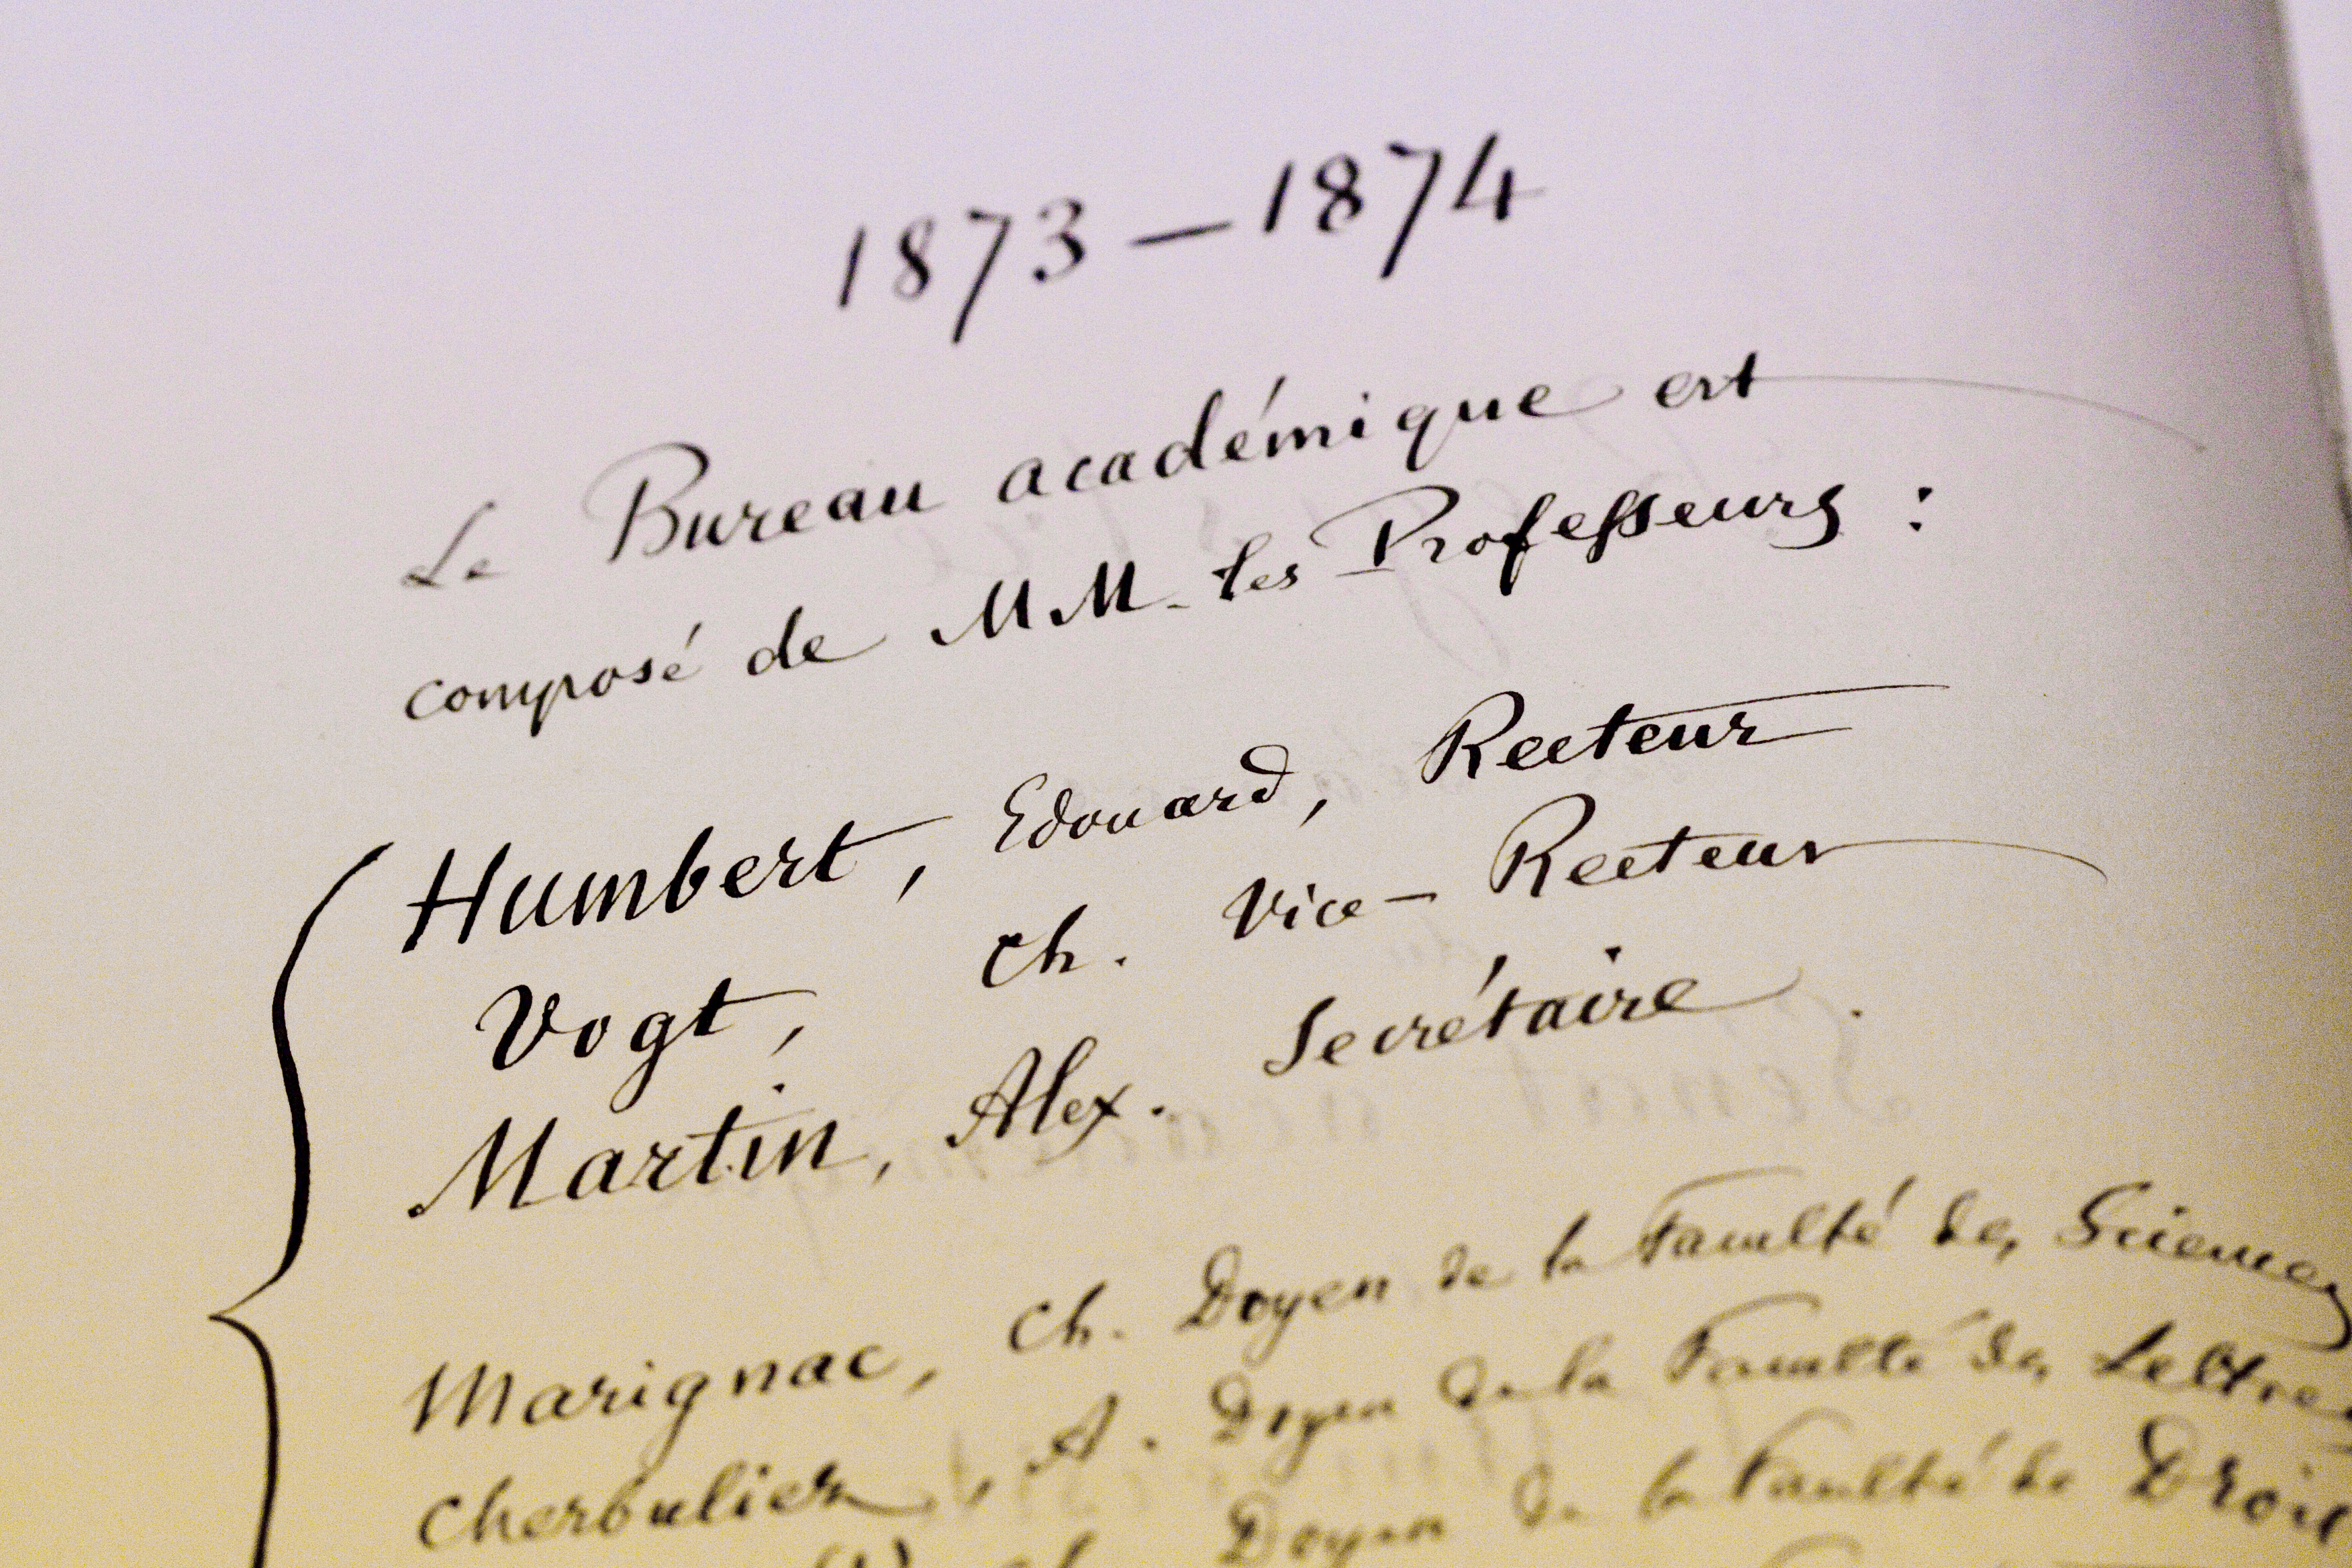 1873 – 1874
Le Bureau académique est
composé de MM. les Professeurs :
Humbert, Edouard, Recteur
Vogt, Ch. Vice-Recteur
Martin, Alex. Secrétaire.
Marignac, Ch. Doyen de la Faculté des Sciences
Cherbuliez, A. Doyen de la Faculté des Lettres
Doyen de la Faculté de Droit